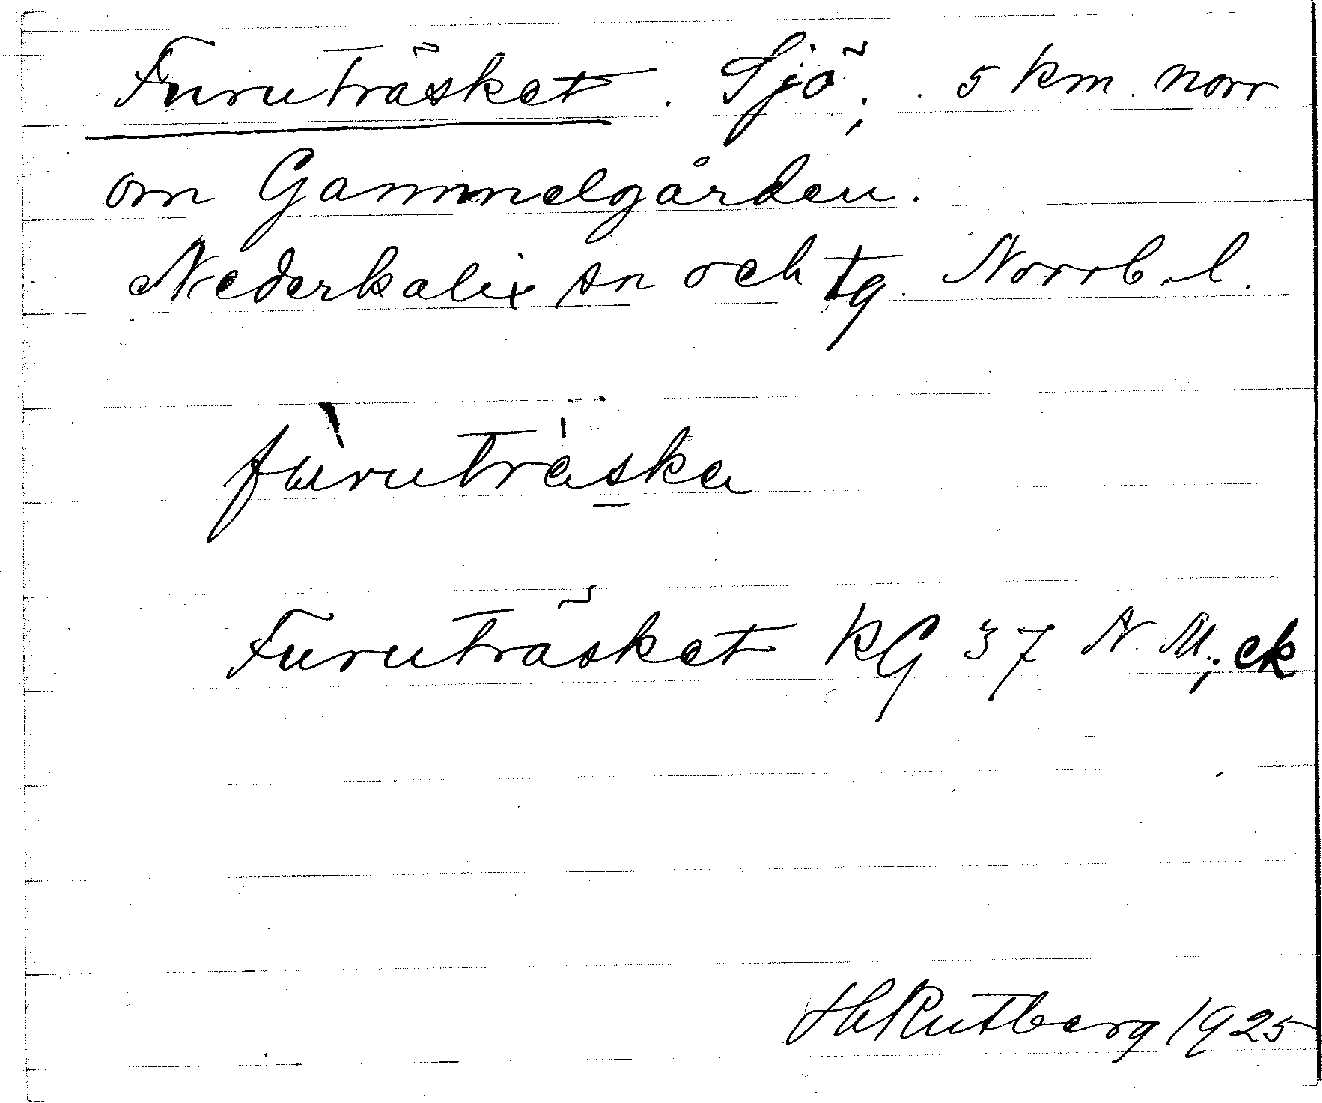 Furuträsket. Sjö, 5 km norr
om Gammelgården.
Nederkalix sn och tg. Norrb. l.
fùruträska
Furuträsket KG 37 N.M.; ek
H Rutberg 1925